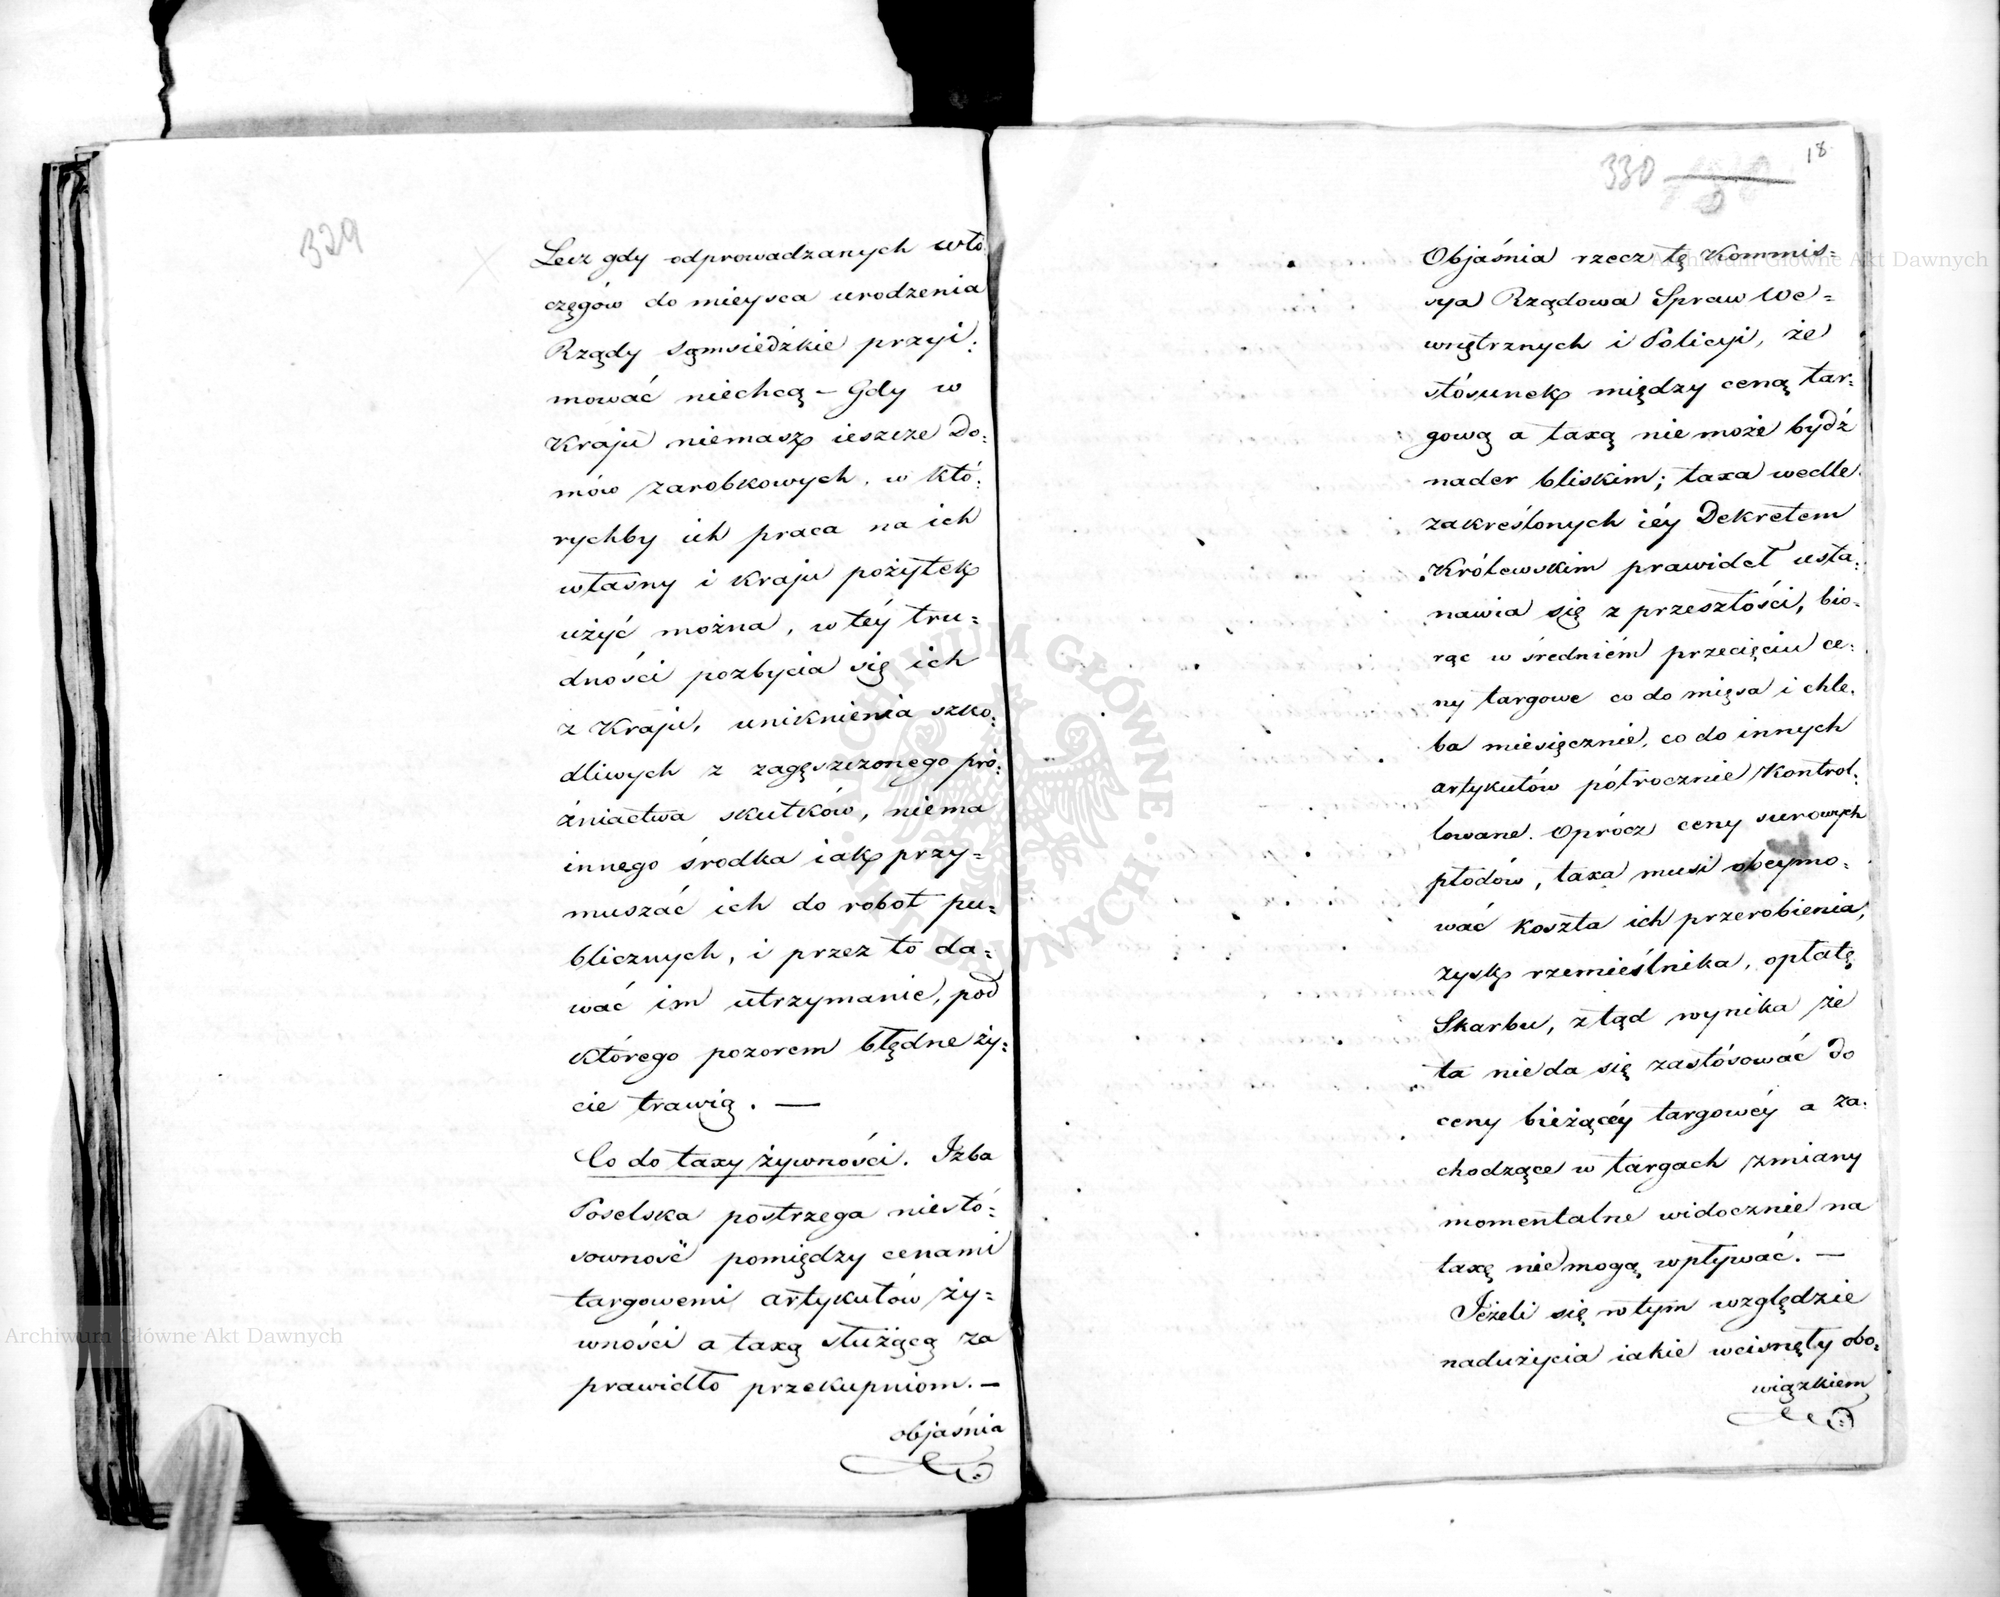 329
Lecz gdy odprowadzanych włó
częgów do mieysca urodzenia
Rządy sąmsiedzkie przyi:
mować niechcą – Gdy w
Kraju niemasz ieszcze Do:
mów zarobkowych, w któ:
rychby ich praca na ich
własny i kraju pożytek
użyć można, w téy tru=
dności pozbycia się ich
z Kraju, uniknienia szko:
dliwych z zagęszczonego pró:
żniactwa skutków, niema
innego środka iak przy=
muszać ich do robot pu=
blicznych, i przez to da=
wać im utrzymanie, pod
którego pozorem błędne ży=
cie trawią. —
Co do taxy żywności. Izba
Poselska postrzega niestó=
sowność pomiędzy cenami
targowemi artykułów ży=
wności a taxą służącą za
prawidło przekupniom. —
objaśnia
18
330
Objaśnia rzecz tę Kommis=
sya Rządowa Spraw We=
wnętrznych i Policyi, że
stósunek między ceną tar=
gową a taxą nie może bydź
nader bliskim; taxa wedle
zakreślonych iéy Dekretem
Królewskim prawideł usta:
nawia się z przeszłości, bio:
rąc w średniém przecięciu ce:
ny targowe co do mięsa i chle:
ba miesięcznie, co do innych
artykułów półrocznie kontrol:
lowane. Oprócz ceny surowych
płodów, taxa musi obeymo=
wać koszta ich przerobienia,
zysk rzemieślnika, opłatę
Skarbu, ztąd wynika że
ta nieda się zastósować do
ceny bieżącéy targowéy a za:
chodzące w targach zmiany
momentalne widocznie na
taxę niemogą wpływać. —
Jeżeli się w tym względzie
nadużycia iakie wcisnęły obo=
wiązkiem
Archiwum Główne Akt Dawnych
Archiwum Główne Akt Dawnych
ARCHIWUM GŁÓWNE AKT DAWNYCH